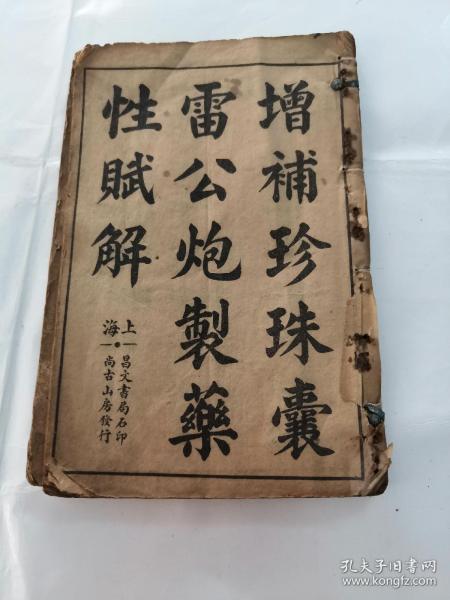 增補珍珠囊
雷公炮製藥
性賦解
上海
昌文書局石印
尚古山房發行
孔夫子旧书网
www.kongfz.com